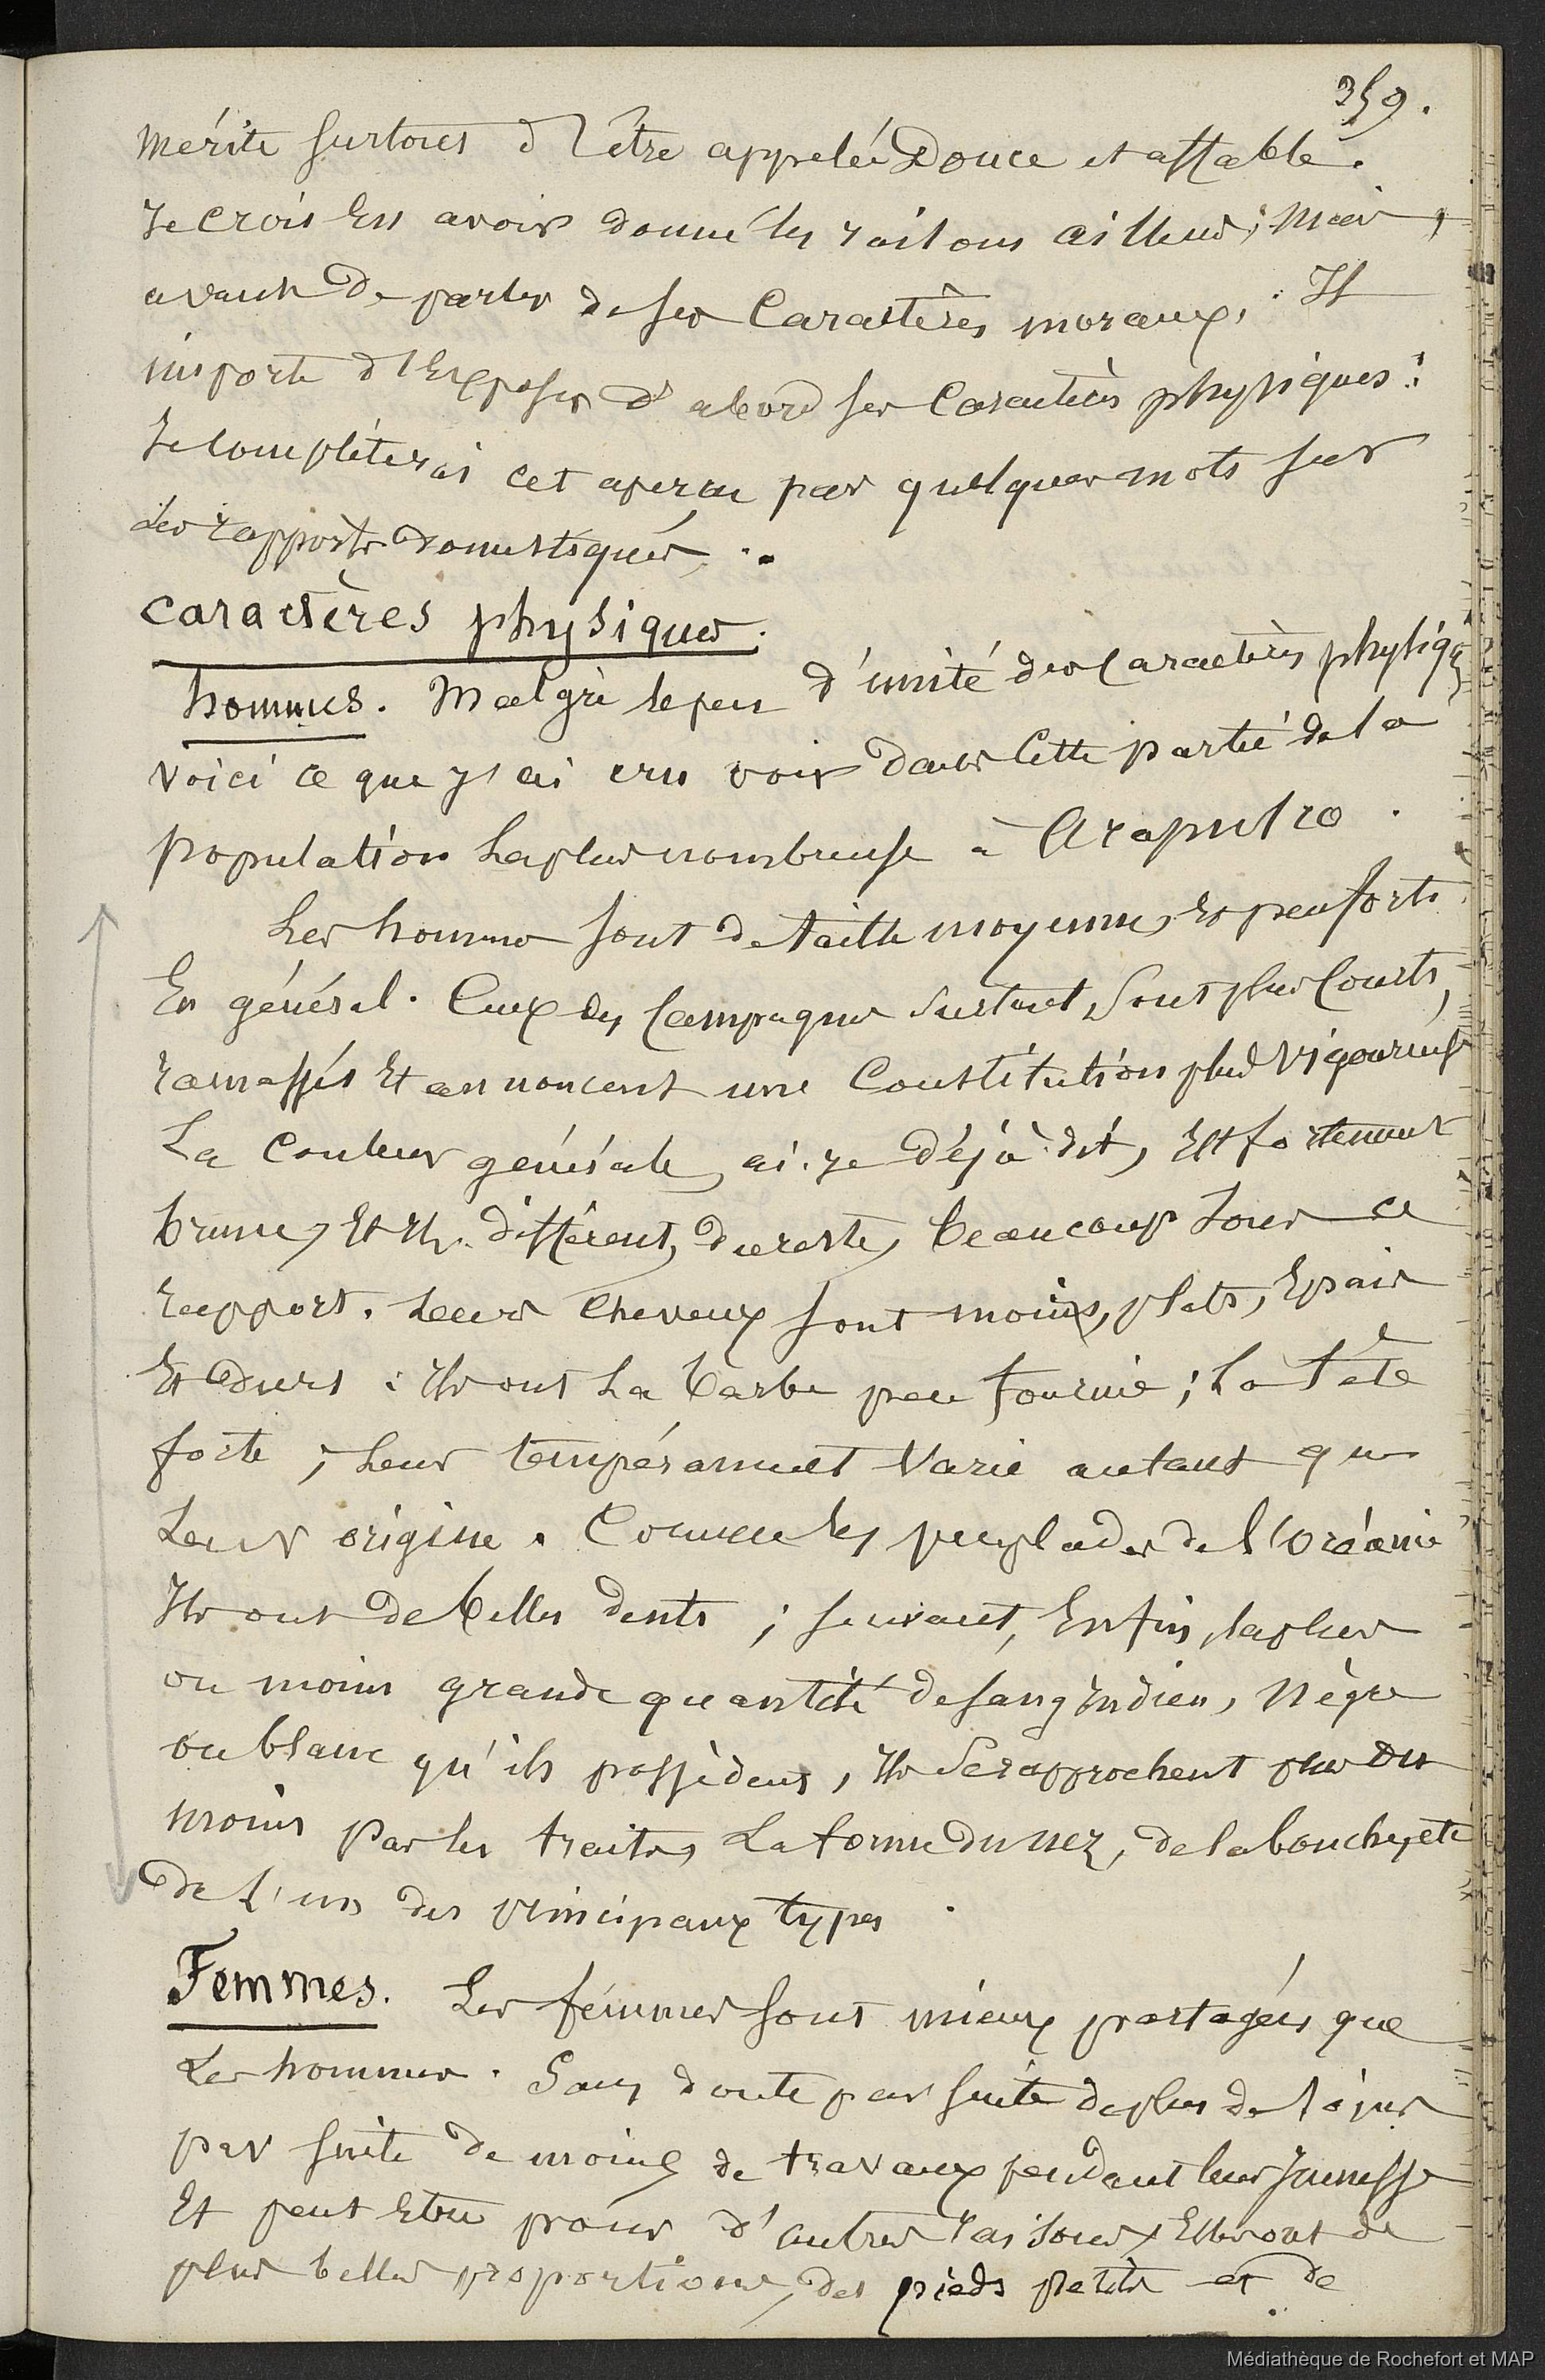 359.
mérite surtout d'être appelée Douce et affable.
Je crois en avoir donné les raisons ailleurs; mais,
avant de parler de ses Caractères moraux, Il
importe d'Exposer d'abord ses Caractères physiques:
Je complèterai cet aperçu par quelques mots sur
Les rapports Domestiques..
Caractères physiques.
hommes. Malgré le peu d'unité des Caractères physiq
voici ce que j'ai cru voir dans Cette partie de la
population La plus nombreuse à Acapulco.
Les hommes sont de taille moyenne, Et peu forts
En général. Ceux des Campagnes surtout, sont plus Courts,
ramassés Et annoncent une Constitution plus vigoureuse
La Couleur générale, ai-je déjà dit, Est fortement
brune, Et Ils différent, du reste, beaucoup sous ce
rapport. Leurs Cheveux sont moins, plats, Epais
Et durs : Ils ont La barbe peu fournie; La tête
forte; Leur tempérament varie autant que
Leur origine. Comme les peuplades de l'Océanie
Ils ont de belles dents; suivant, Enfin, la plus
ou moins grande quantité de sang Indien, Nègre
ou blanc qu'ils possèdent, Ils se rapprochent plus ou
moins par les traits, La forme du nez, de la bouche, etc
De l'un des principaux types.
Femmes. Les femmes sont mieux partagées que
Les hommes. Sans doute par suite de plus de loisirs
par suite de moins de travaux pendant leur Jeunesse
Et peut Etre pour d'autres raisons, Elles ont de
plus belles proportions, des pieds petits et de
Médiathèque de Rochefort et MAP